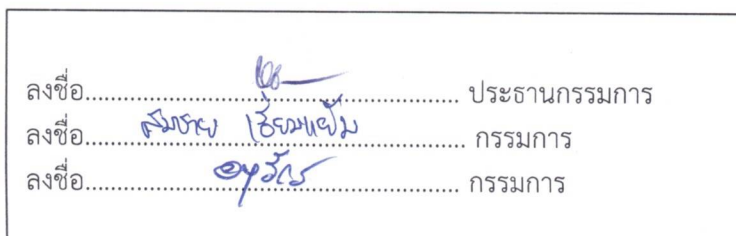 ลงชื่อ.................................................................. ประธานกรรมการ
ลงชื่อ........สมชาย เอี่ยมแย้ม........ กรรมการ
ลงชื่อ.................................................................. กรรมการ